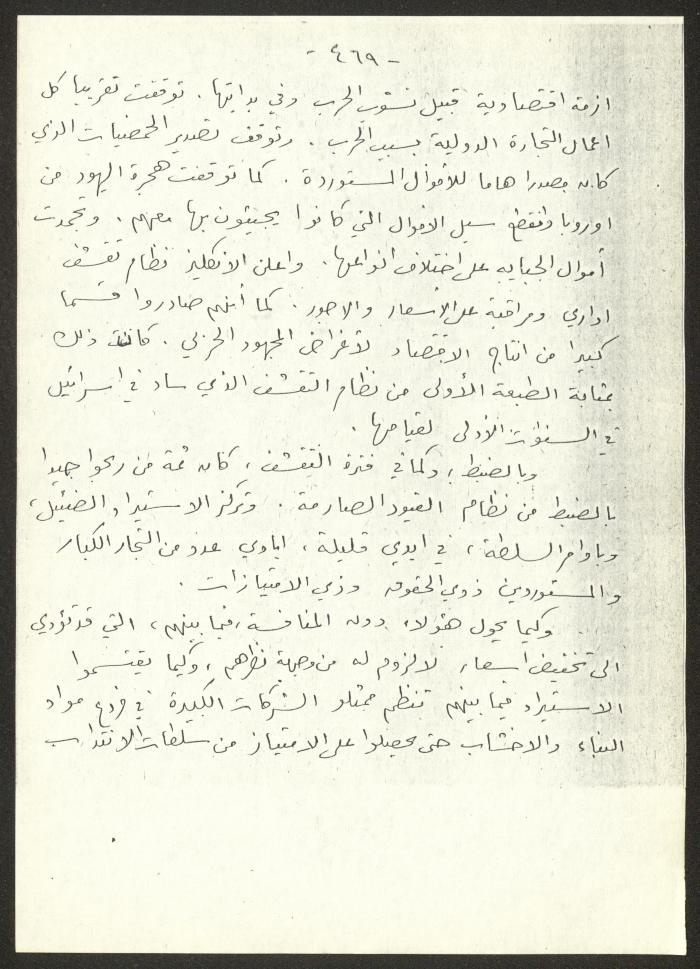 - ٤٦٩ -
ازمة اقتصادية قبيل نشوب الحرب وفي بدايتها. توقفت تقريبا كل
اعمال التجارة الدولية بسبب الحرب. وتوقف تصدير الحمضيات الذي
كان مصدرا هاما للأموال المستوردة. كما توقفت هجرة اليهود من
اوروبا وانقطع سيل الاموال التي كانوا يجيئون بها معهم. وتجمدت
أموال الجباية على اختلاف انواعها. واعلن الانكليز نظام تقشف
اداري ومراقبة على الاسعار والاجور. كما أنهم صادروا قسما
كبيرا من انتاج الاقتصاد لأغراض المجهود الحربي. كانت ذلك
بمثابة الطبعة الأولى من نظام التقشف الذي ساد في اسرائيل
في السنوات الأولى لقيامها.
وبالضبط، وكما في فترة التقشف، كان ثمة من ربحوا جيدا
بالضبط من نظام القيود الصارمة. وتركز الاستيراد الضئيل،
وباوامر السلطة، في ايدي قليلة، ايادي عدد من التجار الكبار
والمستوردين ذوي الحقوق وذي الامتيازات.
وكيما يحول هؤلاء دون المنافسة، فيما بينهم، التي قد تؤدي
الى تخفيض اسعار لا لزوم له من وجهة نظرهم، وكيما يقتسموا
الاستيراد فيما بينهم تنظم ممثلو الشركات الكبيرة في فروع مواد
البناء والاخشاب حتى يحصلوا على الامتياز من سلطات الانتداب